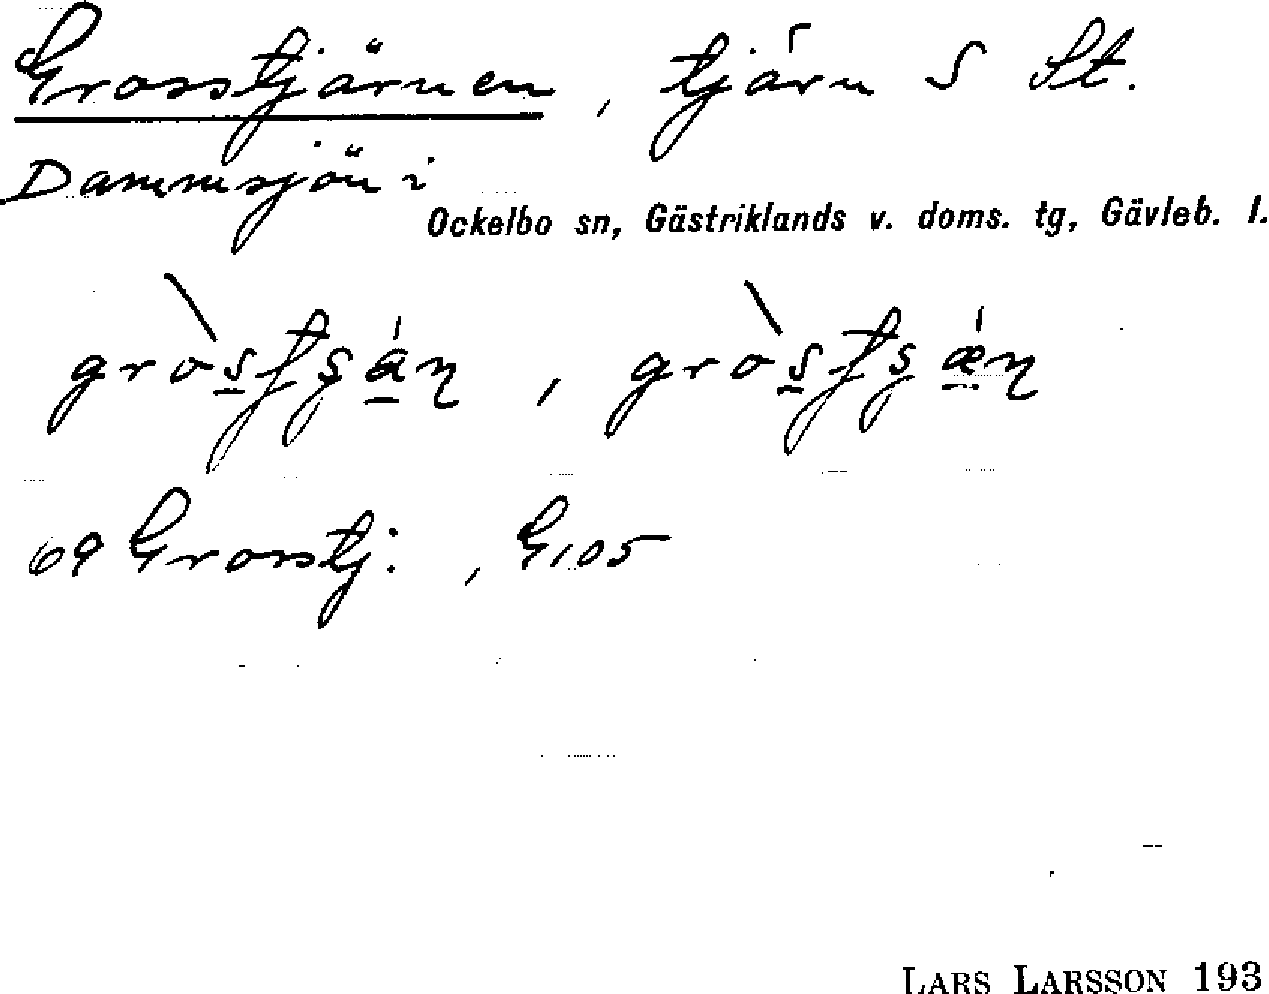 Grosstjärnen, tjärn S St.
Dammsjön i
Ockelbo sn, Gästriklands v. doms. tg, Gävleb. l.
69 Grosstj. , G105
LARS LARSSON 193